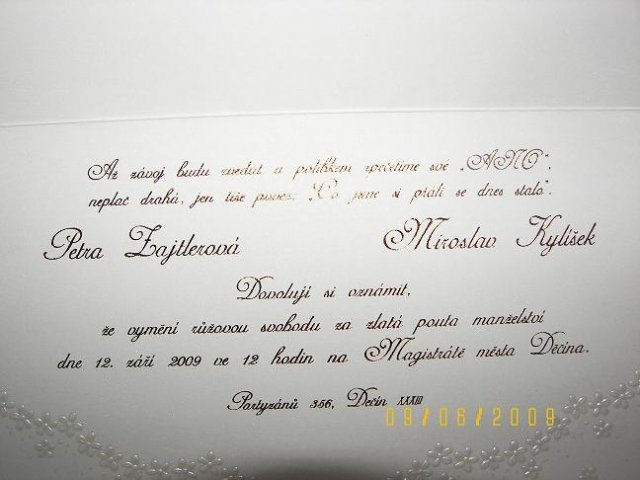 Až závoj budu zvedat a polibkem zpečetíme své „ANO“,
neplač drahá, jen tiše pověz: „Co jsme si přáli se dnes stalo“.
Petra Zajtlerová Miroslav Kylíšek
Dovolují si oznámit,
že vymění růžovou svobodu za zlatá pouta manželství
dne 12. září 2009 ve 12 hodin na Magistrátě města Děčína.
Partyzánů 356, Děčín XXXIII
09/06/2009